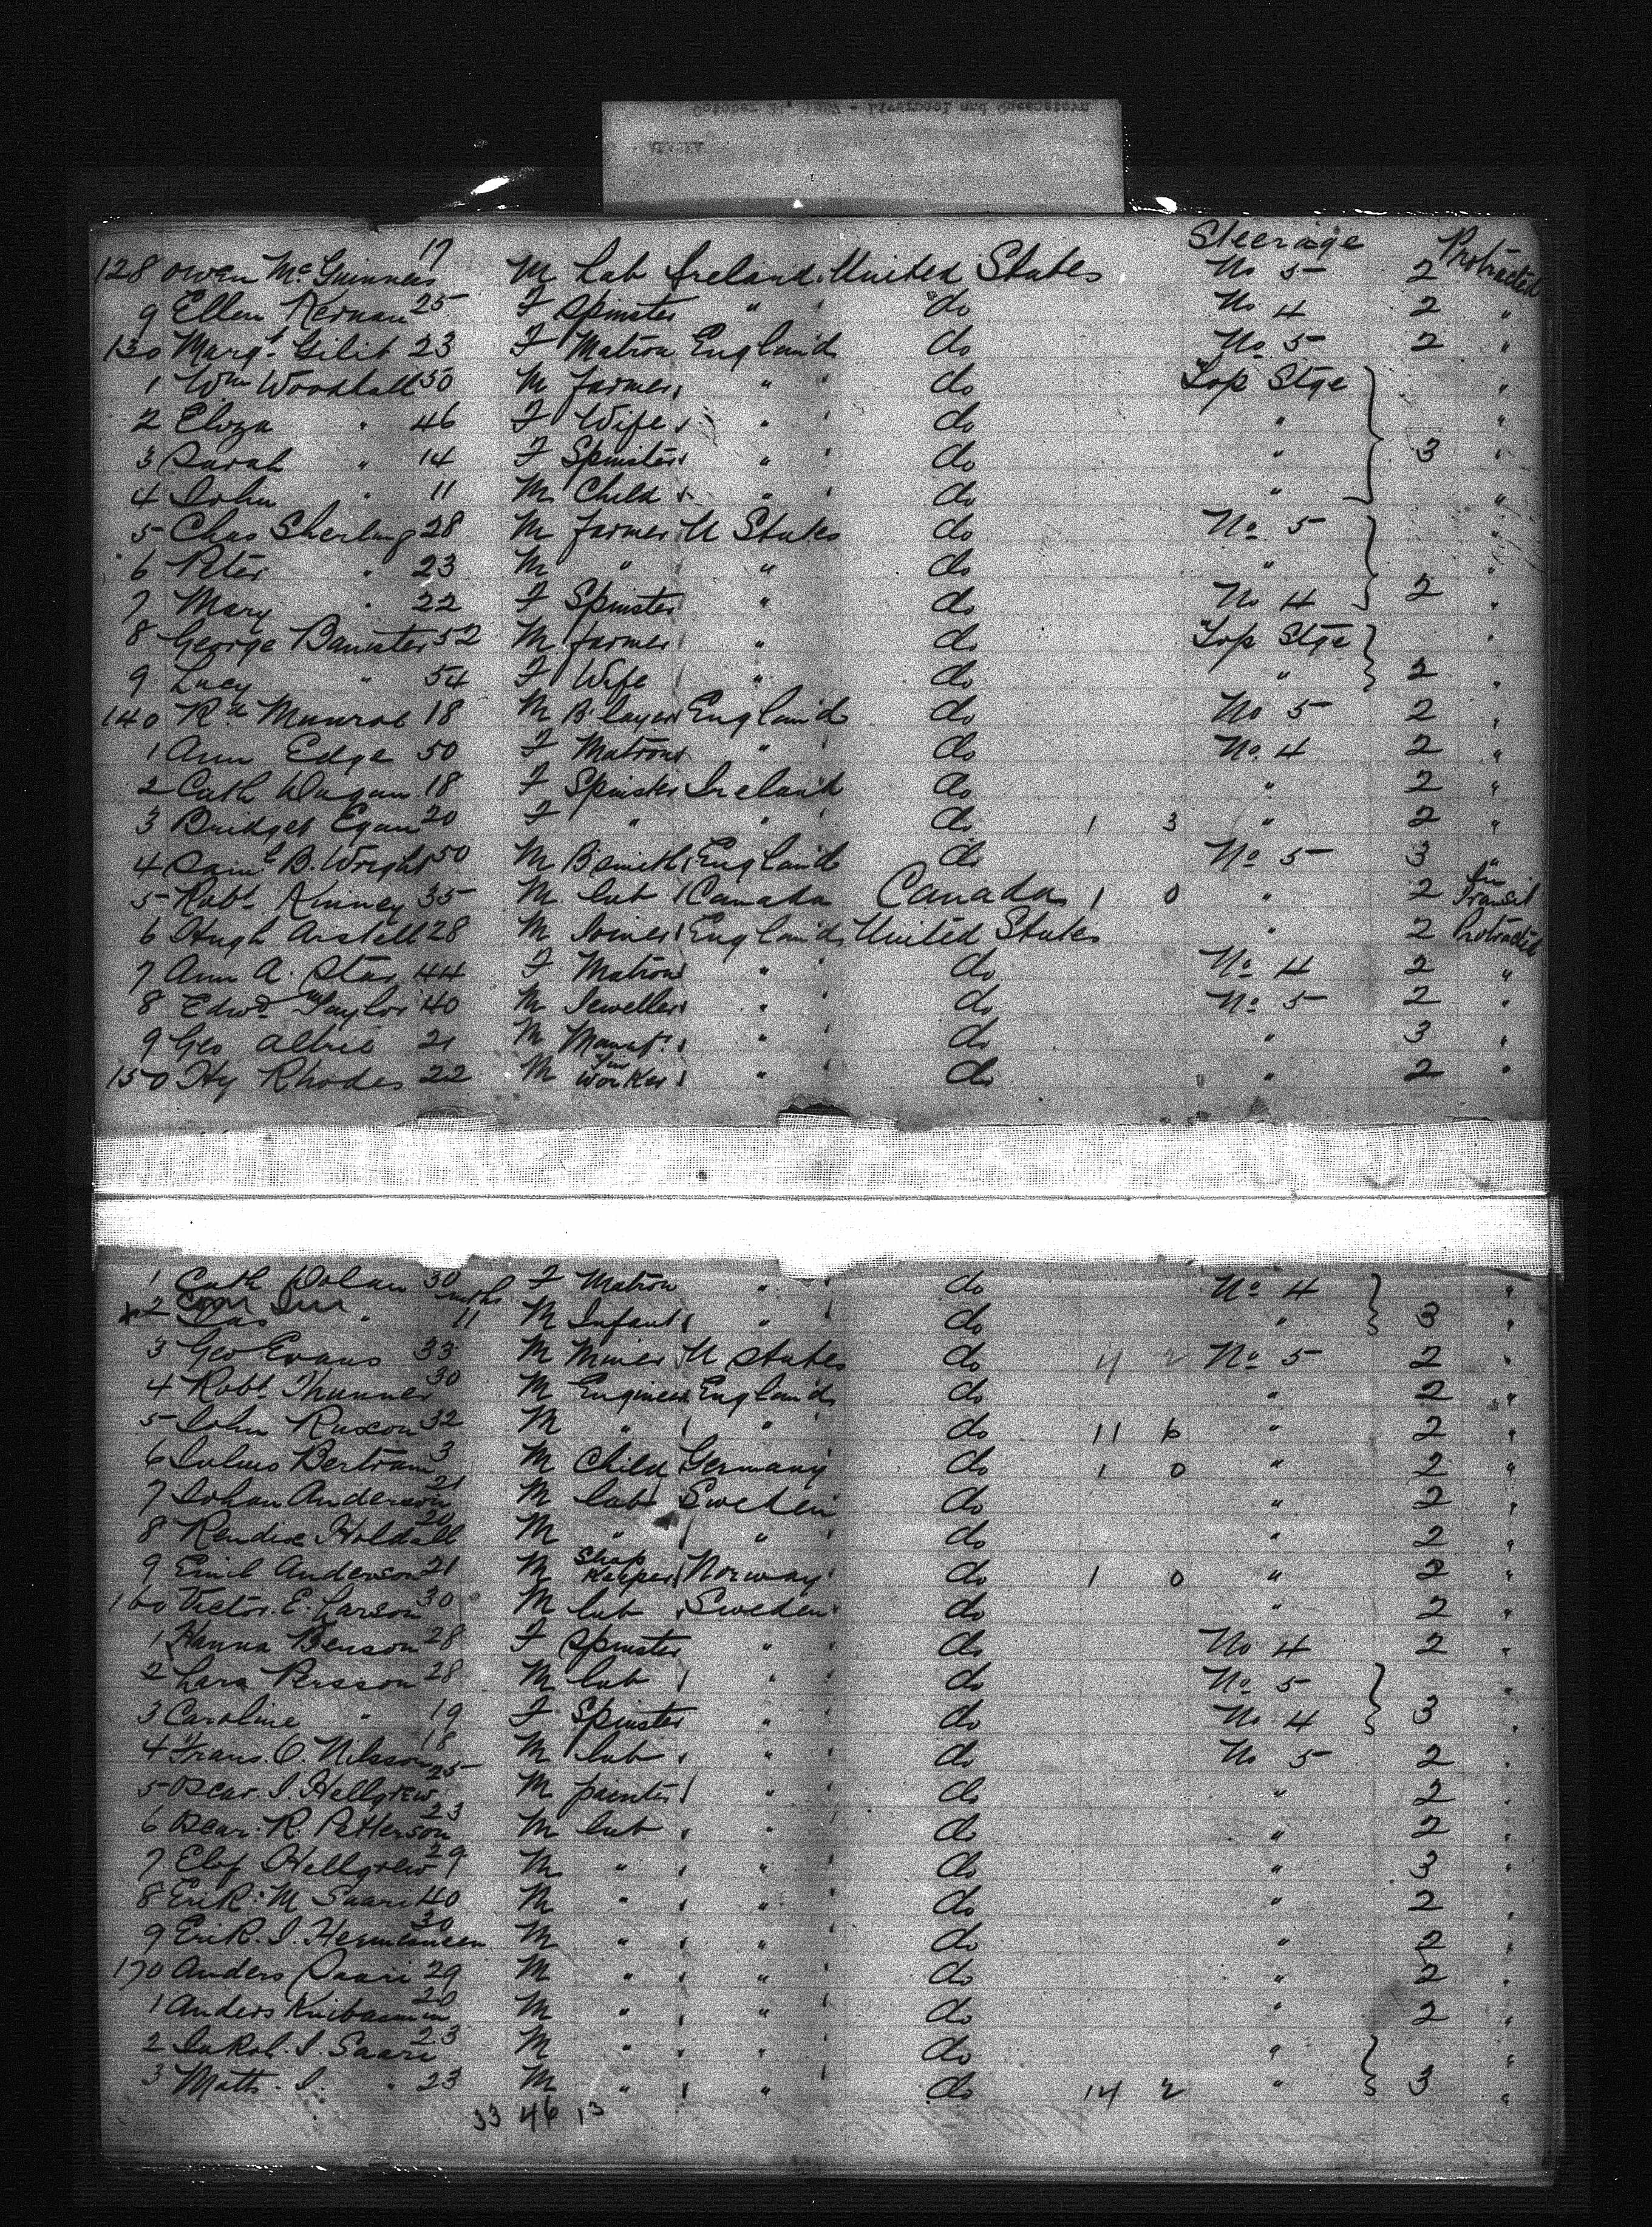 Steerage
128 Owen McGuinness 17 M Lab Ireland United States No 5 2 Protracted
9 Ellen Kernan 25 F Spinster " " do No 4 2 "
130 Margt Gilib 23 F Matron England do No 5 2 "
1 Wm Woodhall 50 M Farmer " " do Top Stge "
2 Eliza " 46 F Wife " " do " "
3 Sarah " 14 F Spinster " " do " 3 "
4 John " 11 M Child " " do " "
5 Chas Sherling 28 M Farmer U States do No 5 "
6 Peter " 23 M " " do " "
7 Mary " 22 F Spinster " do No 4 2 "
8 George Banister 52 M Farmer " do Top Stge "
9 Lucy " 54 F Wife " do " 2 "
140 Rd Munrob 18 M B.layer England do No 5 2 "
1 Ann Edge 50 F Matron " " do No 4 2 "
2 Cath Dugan 18 F Spinster Ireland do " 2 "
3 Bridget Egan 20 F " " " do 1 3 " 2 "
4 Saml B. Wright 50 M B'smith England do No 5 3 "
5 Robt Kinney 35 M Lab Canada Canada 1 0 " 2 In Transit
6 Hugh Arstell 28 M Joiner England United States " 2 Protracted
7 Ann A. Star 44 F Matron " " do No 4 2 "
8 Edwd Taylor 40 M Jeweller " " do No 5 2 "
9 Geo Albrie 21 M Manuf. " " do " 3 "
150 Hy Rhodes 22 M Tin Worker " " do " 2 "
1 Cath Dolan 30 F Matron " " do No 4 "
2 Jas " 11 mths M Infant " " do " 3 "
3 Geo Evans 33 M Miner U States do 4 2 No 5 2 "
4 Robt Thunner 30 M Engineer England do " 2 "
5 John Ruxcon 32 M " " do 11 6 " 2 "
6 Julius Bertram 3 M Child Germany do 1 0 " 2 "
7 Johan Anderson 21 M Lab Sweden do " 2 "
8 Rendixe Holdall 20 M " " " do " 2 "
9 Emil Anderson 21 M Shop Keeper Norway do 1 0 " 2 "
160 Victor. E. Larson 30 M Lab Sweden do " 2 "
1 Hanna Benson 28 F Spinster " " do No 4 2 "
2 Lars Persson 28 M Lab " " do No 5 "
3 Caroline " 19 F Spinster " " do No 4 3 "
4 Frans. O. Nilsson 18 M Lab " " do No 5 2 "
5 Oscar. I. Hellgrew 25 M painter " " do " 2 "
6 Oscar. R. Petterson 23 M Lab " " do " 2 "
7 Elof Hellgrew 29 M " " " do " 3 "
8 Erik. M Saari 40 M " " " do " 2 "
9 Erik. I. 30 M " " " do " 2 "
170 Anders Saari 29 M " " " do " 2 "
1 Anders 20 M " " " do " 2 "
2 Jakob. I. Saari 23 M " " " do " "
3 Matts. I. " 23 M " " " do 14 2 " 3 "
33 46 13